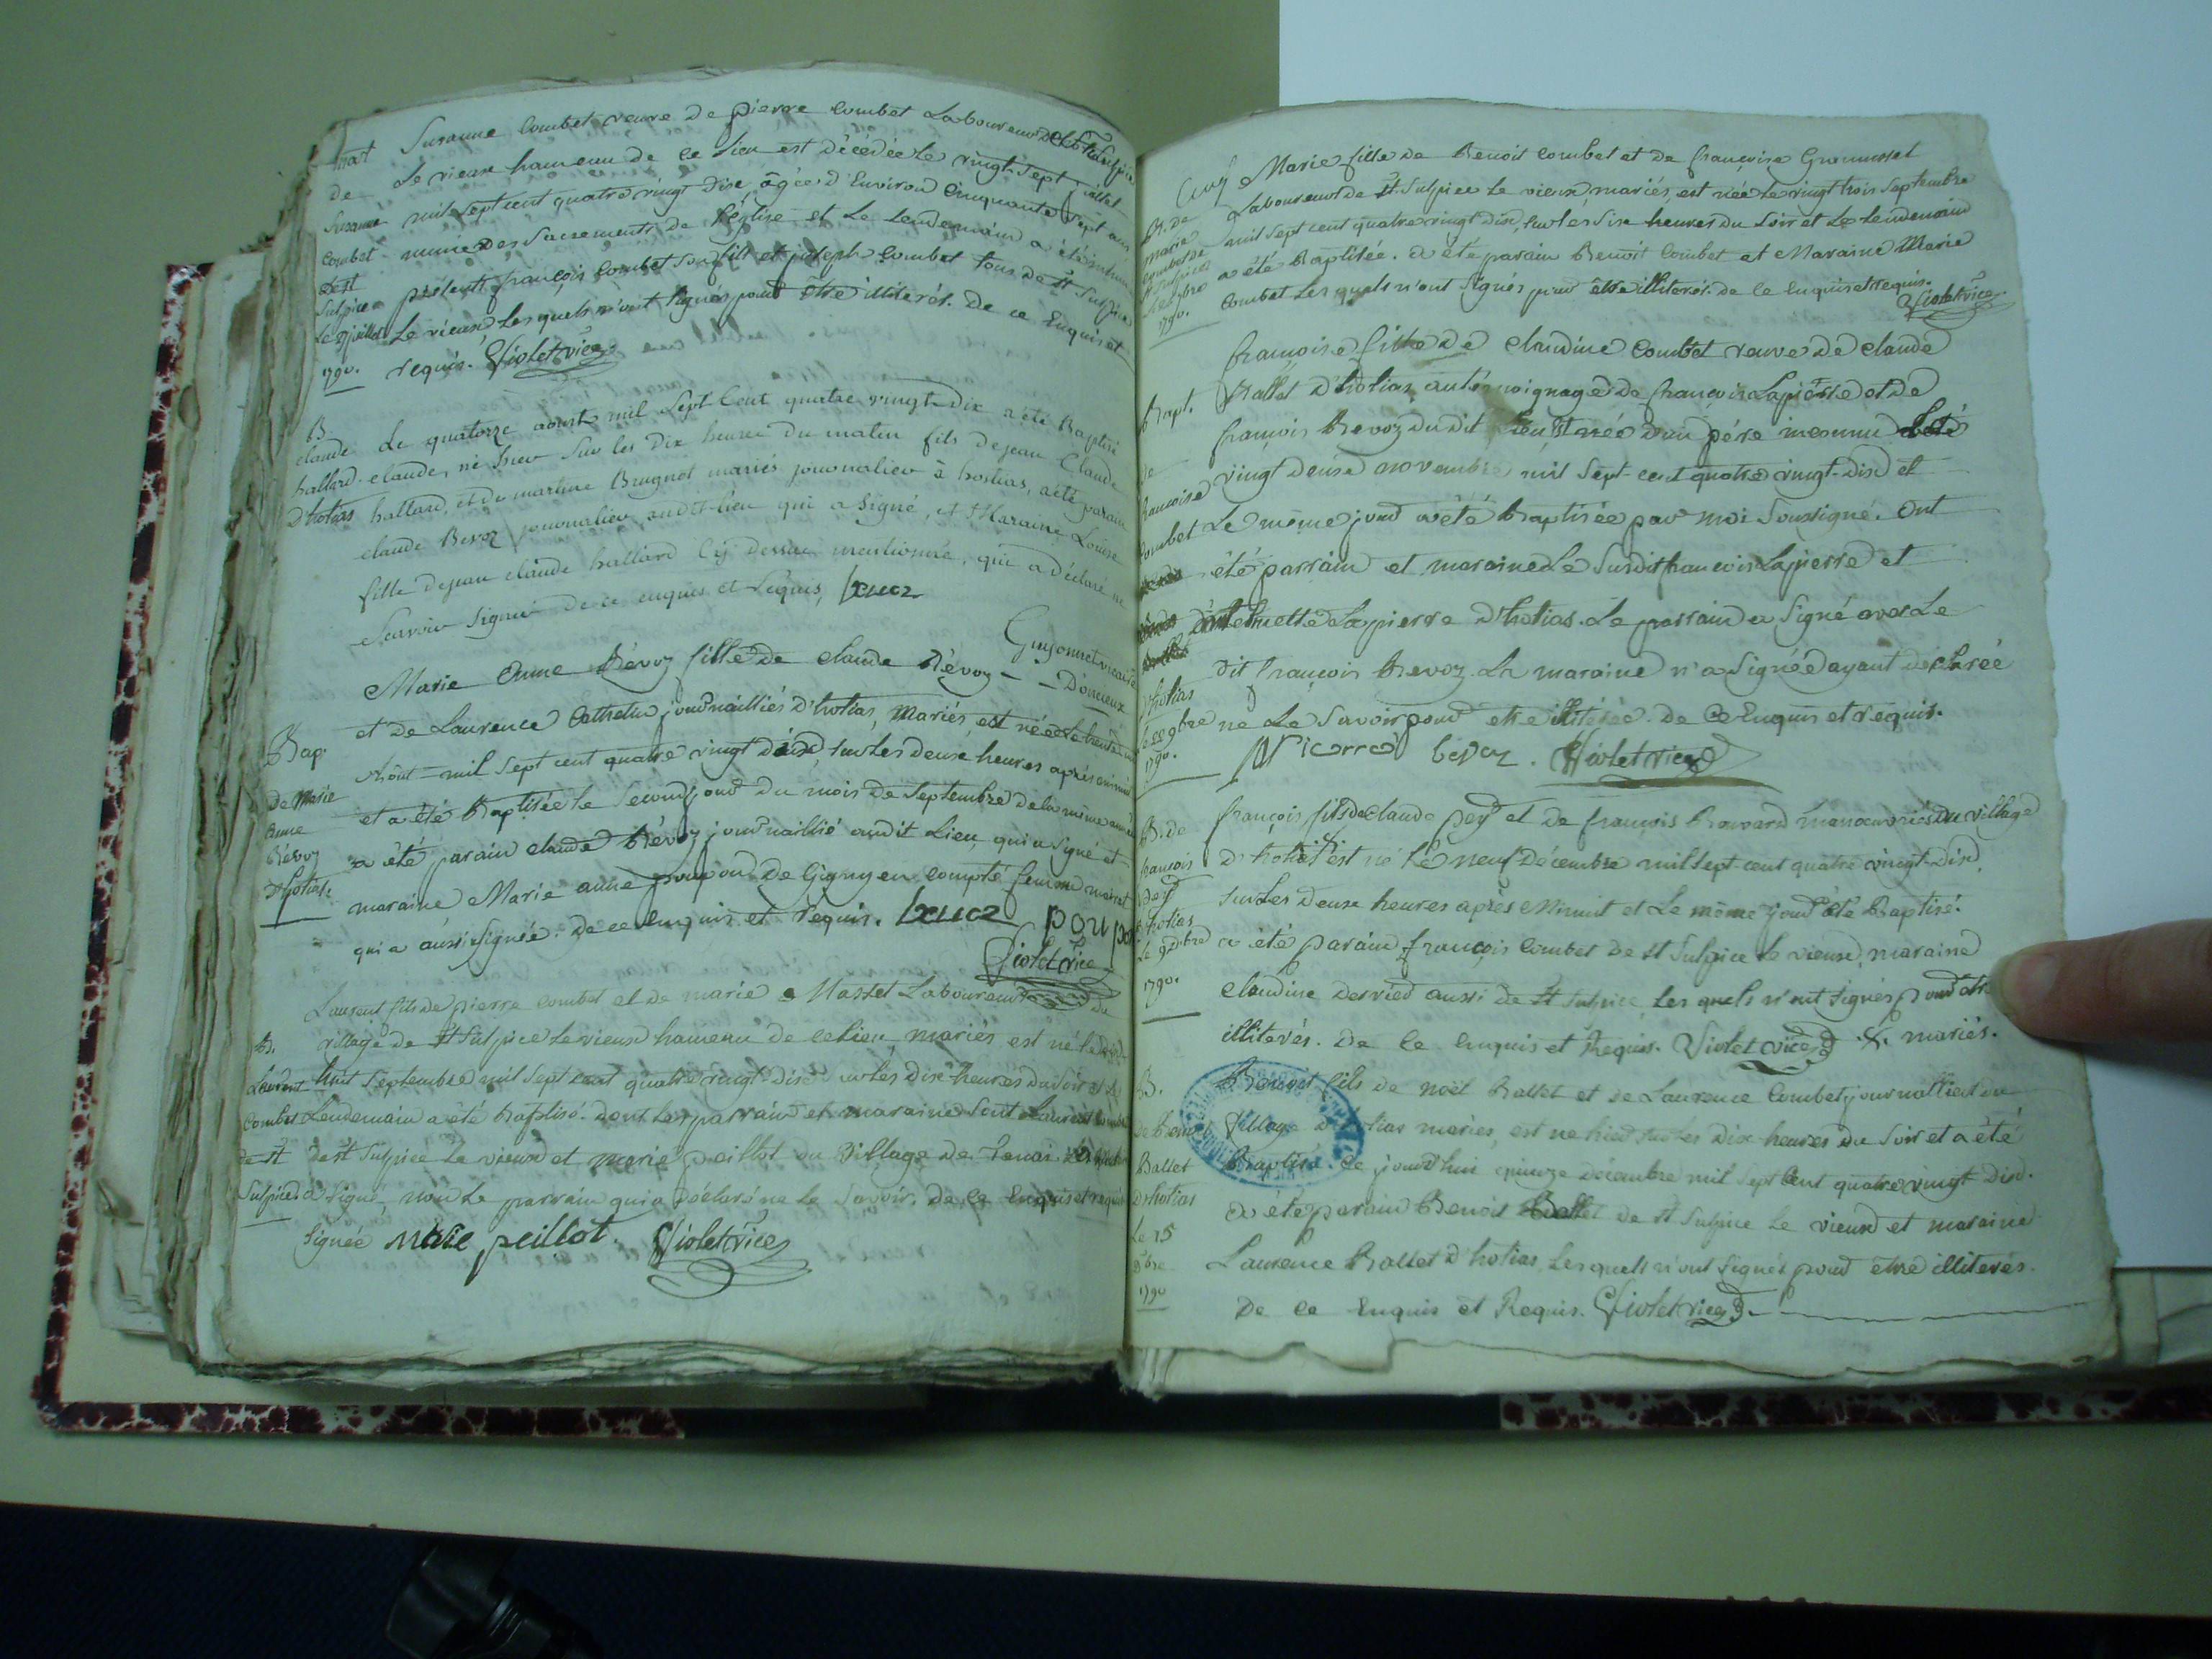 Susanne Combet veuve de pierre Combet Laboureur de St Sulpice
Le vieux hameau de ce lieu est décédée le vingt-sept juillet
mil sept cent quatre vingt dix, âgée d'Environ Cinquante sept ans
munie des Sacrements de l'église et le lendemain a été inhumée
présents françois Combet son fils et joseph Combet tous de St Sulpice
Le vieux Lesquels n'ont signés pour être illiterés. De ce Enquis et
requis. Violet vice
mat
de
Susanne
Combet
de St
Sulpice
le 27 juillet
1790.
Le quatorze aoust mil Sept Cent quatre vingt-dix a été Baptisé
claude, né hier Sur les Dix heures du matin fils de jean Claude
hallard, et de martine Brugnot mariés journalier à hostias, a été parain
claude Bevoz journalier audit-lieu qui a Signé, et Maraine Louise
fille dejean claude hallard Cy Dessus mentionné, qui a déclaré ne
Scavoir Signer De ce enquis et Requis,
B
claude
hallard
D'hotias
Guyonnet vicaire
D'oncieux
Marie Anne Révoz fille de claude Révoz
et de Laurence Cathelin journailliés d'hotias, Mariés, est née le trente
Aôut mil sept cent quatre vingt dix, sur les deux heures après minuit
et a été Baptisée le Second jour du mois de Septembre de la même année
a été parain claude Révoz journaillié audit Lieu qui a signé et
maraine Marie anne poupon de Gigny en compté femme
qui a aussi signée. De ce enquis et requis. poupon
Violet vice
Bap.
de Marie
Anne
Révoz
d'hotias.
Laurent fils de pierre Combet et de marie Mastet Laboureurs du
village de St Sulpice Le vieux hameau de ce Lieu, mariés est né le dix
huit Septembre mil sept cent quatre vingt-dix sur les dix heures du Soir et le
Lendemain a été baptisé. dont les parrain et maraine sont Laurent Combet
de St Sulpice Le vieux et marie peillot du village de Tenai.
a signé, non Le parrain qui a déclaré ne le Savoir. De ce Enquis et requis
Signée marie peillot. Violet vice
B.
Laurent
Combet
de St
Sulpice
Marie fille de Benoit Combet et de françoise Grumusset
Laboureurs de St Sulpice Le vieux mariés, est née Le vingt trois Septembre
mil sept cent quatre vingt dix, sur les Six heures du Soir et Le lendemain
a été Baptisée. a été parain Benoit Combet et Maraine Marie
Combet Lesquels n'ont Signés pour être illiterés. de ce Enquis et requis.
Violet vice
B. de
marie
Combet de
St Sulpice
1790.
françoise fille de Claudine Combet veuve de claude
Ballet d'hotias, au témoignage de françois Lapierre et de
françois Bevoz dudit Lieu est née d'un père inconnu
vingt deux novembre mil sept cent quatre vingt-dix et
Le même jour a été baptisée par moi Soussigné. Ont
été parrain et maraine Le Susdit francois Lapierre et
Lapierre d'hotias. Le parrain a Signé avec Le
dit françois Bevoz. La maraine n'a Signée ayant déclarée
ne Le Savoir pour etre illiterée. De Ce Enquis et requis.
bevoz. Violet vice
Bapt.
de
francoise
Combet
d'hotias
le 22 9bre
1790.
françois fils de claude pey et de françois Bavard manoeuvriés du village
d'hotias est né Le neuf décembre mil sept cent quatre vingt-dix,
sur les deux heures après Minuit et Le même jour été Baptisé.
a été parain françois Combet de St Sulpice le vieux, maraine
claudine Derried aussi de St Sulpice, Lesquels n'ont Signés pour être
illiterés. De Ce Enquis et Requis. Violet vice &. mariés.
B. de
francois
pey
d'hotias
Le 9 Xbre
1790.
Benoit fils de noël Ballet et de Laurence Combet journalliers du
village d'hotias mariés, est né hier sur les Dix heures du Soir et a été
Baptisé. Ce jourd'hui quinze décembre mil sept Cent quatre vingt Dix.
a été parain Benoit Ballet de St Sulpice Le vieux et maraine
Laurence Ballet d'hotias Lesquels n'ont Signés pour être illiterés.
De Ce Enquis et Requis. Violet vice
B.
de Benoit
Ballet
d'hotias
Le 15
Xbre
1790